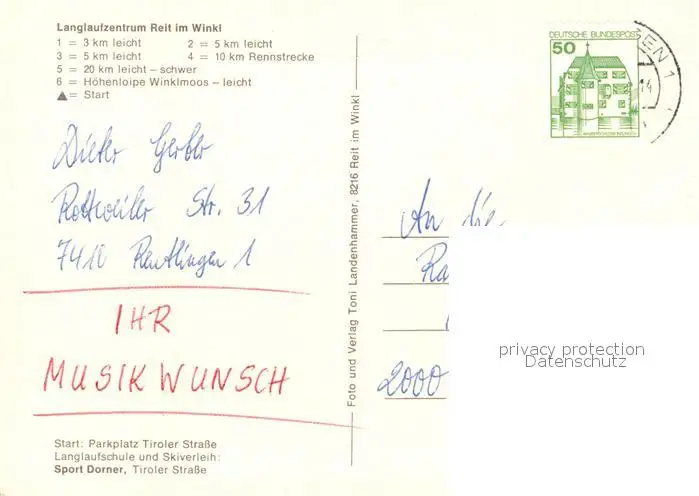 Langlaufzentrum Reit im Winkl
1 = 3 km leicht 2 = 5 km leicht
3 = 5 km leicht 4 = 10 km Rennstrecke
5 = 20 km leicht – schwer
6 = Höhenloipe Winklmoos – leicht
▲ = Start
Dieter Gerber
Rottweiler Str. 31
7410 Reutlingen 1
IHR
MUSIKWUNSCH
Start: Parkplatz Tiroler Straße
Langlaufschule und Skiverleih:
Sport Dorner, Tiroler Straße
Foto und Verlag Toni Landenhammer, 8216 Reit im Winkl
DEUTSCHE BUNDESPOST
50
EN 1
An die
Ra
2000
privacy protection
Datenschutz